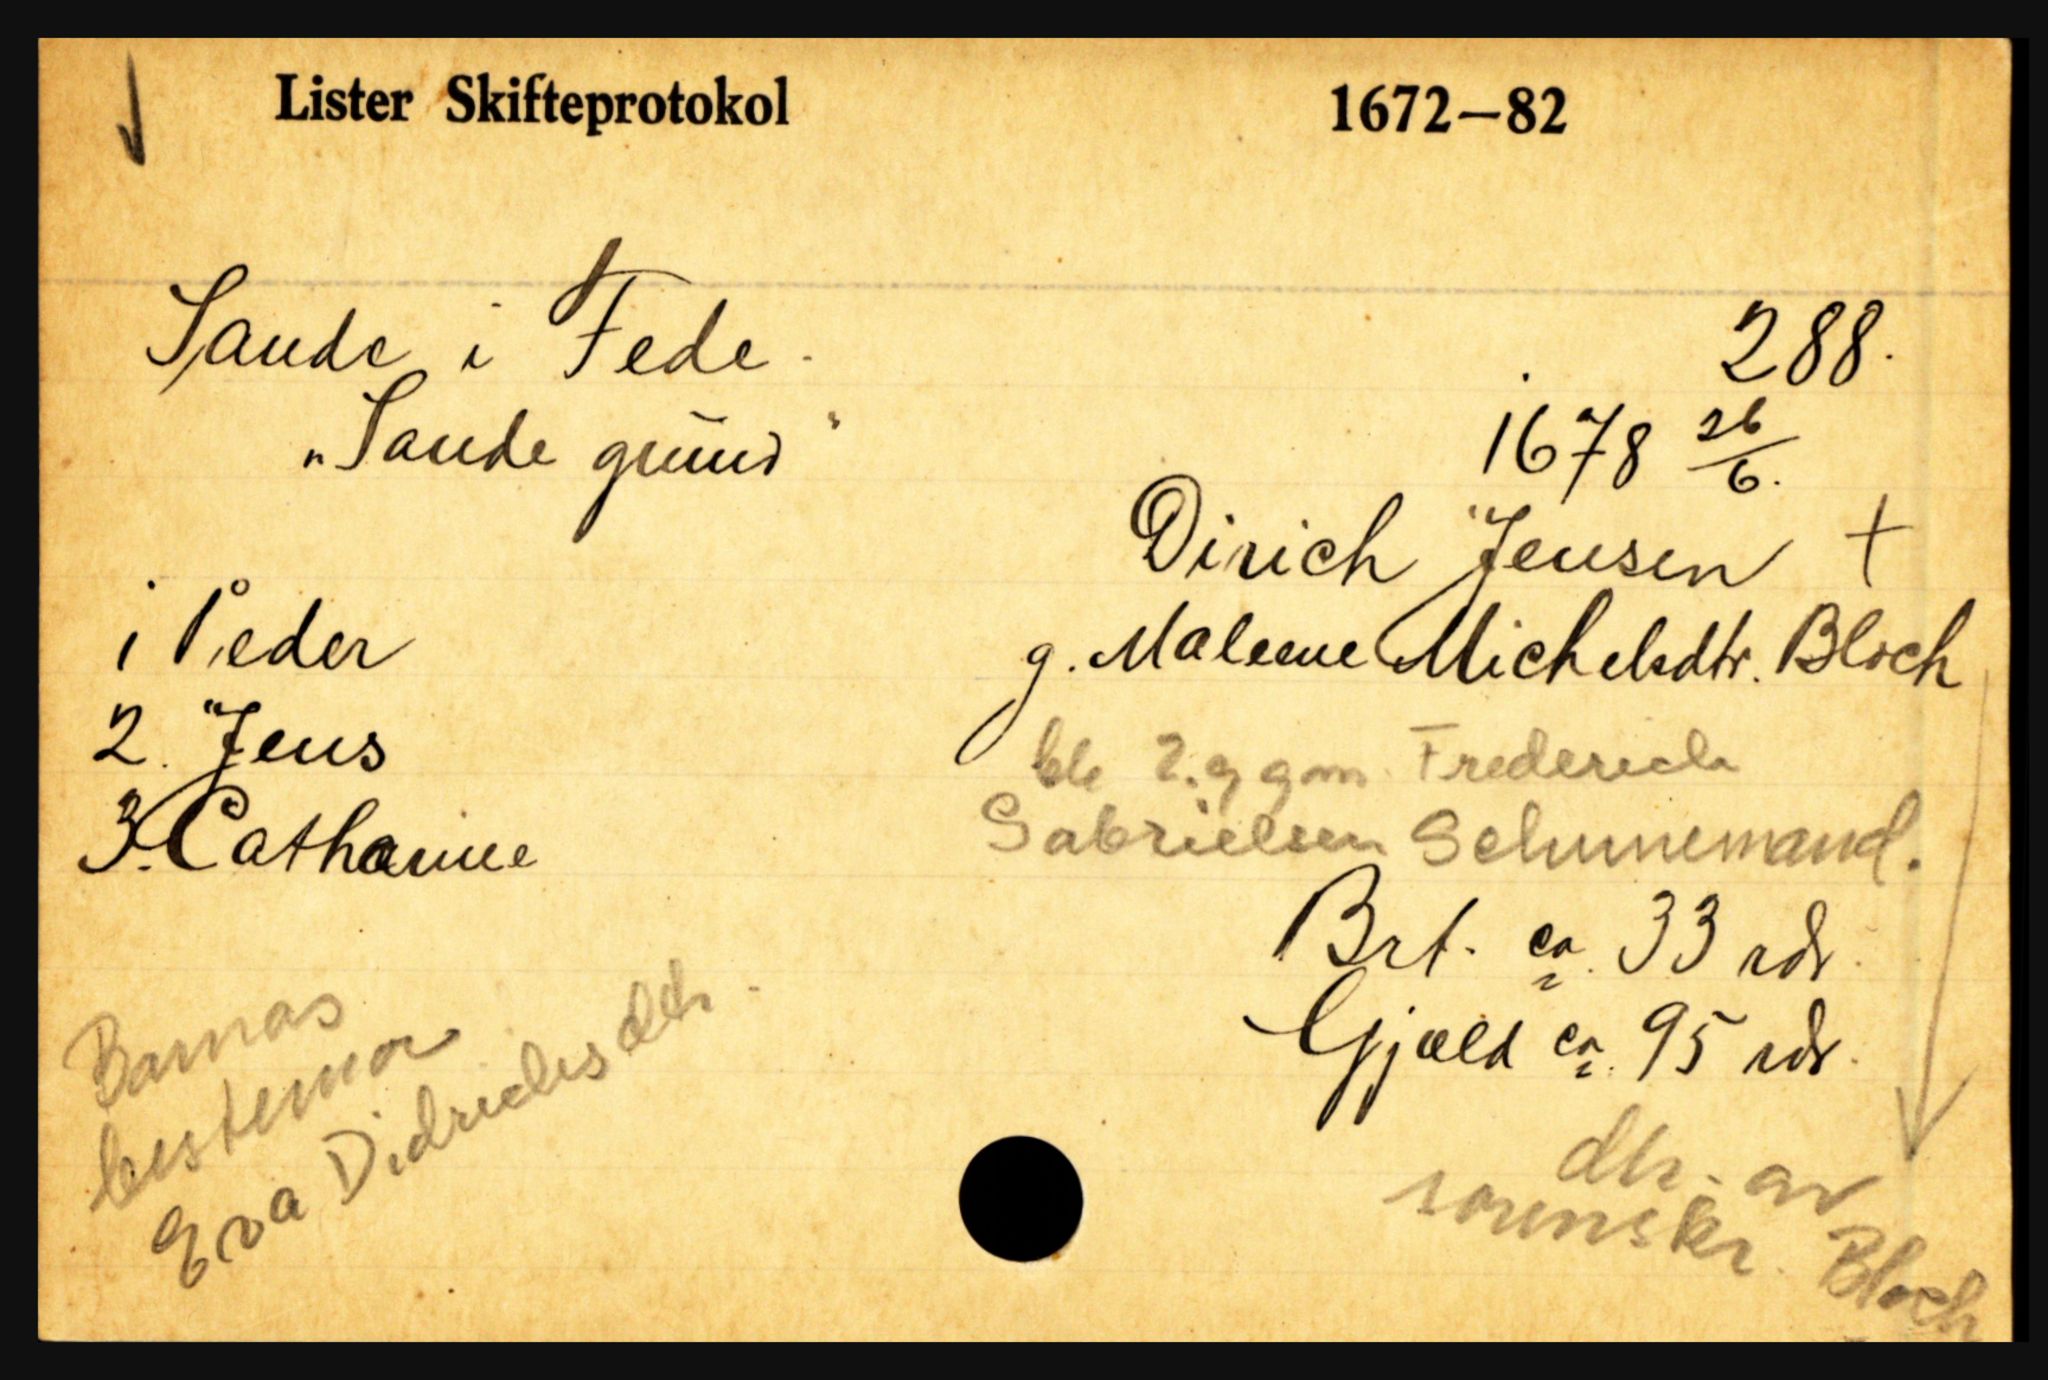 Lister Skifteprotokol 1672–82
Sande i Fede. 288.
"Sande grund" 1678 26/6.
Dirich Jensen +
g. Malene Michelsdtr. Bloch
1 Peder
2. Jens
3. Catharine
ble 2. g gm. Frederich
Gabrielsen Schunemand.
Brt. ca. 33 rdr.
Gjæld ca. 95 rdr.
Barnas
bestemor
Eva Didrichsdtr.
dtr. av
sorenskr. Bloch